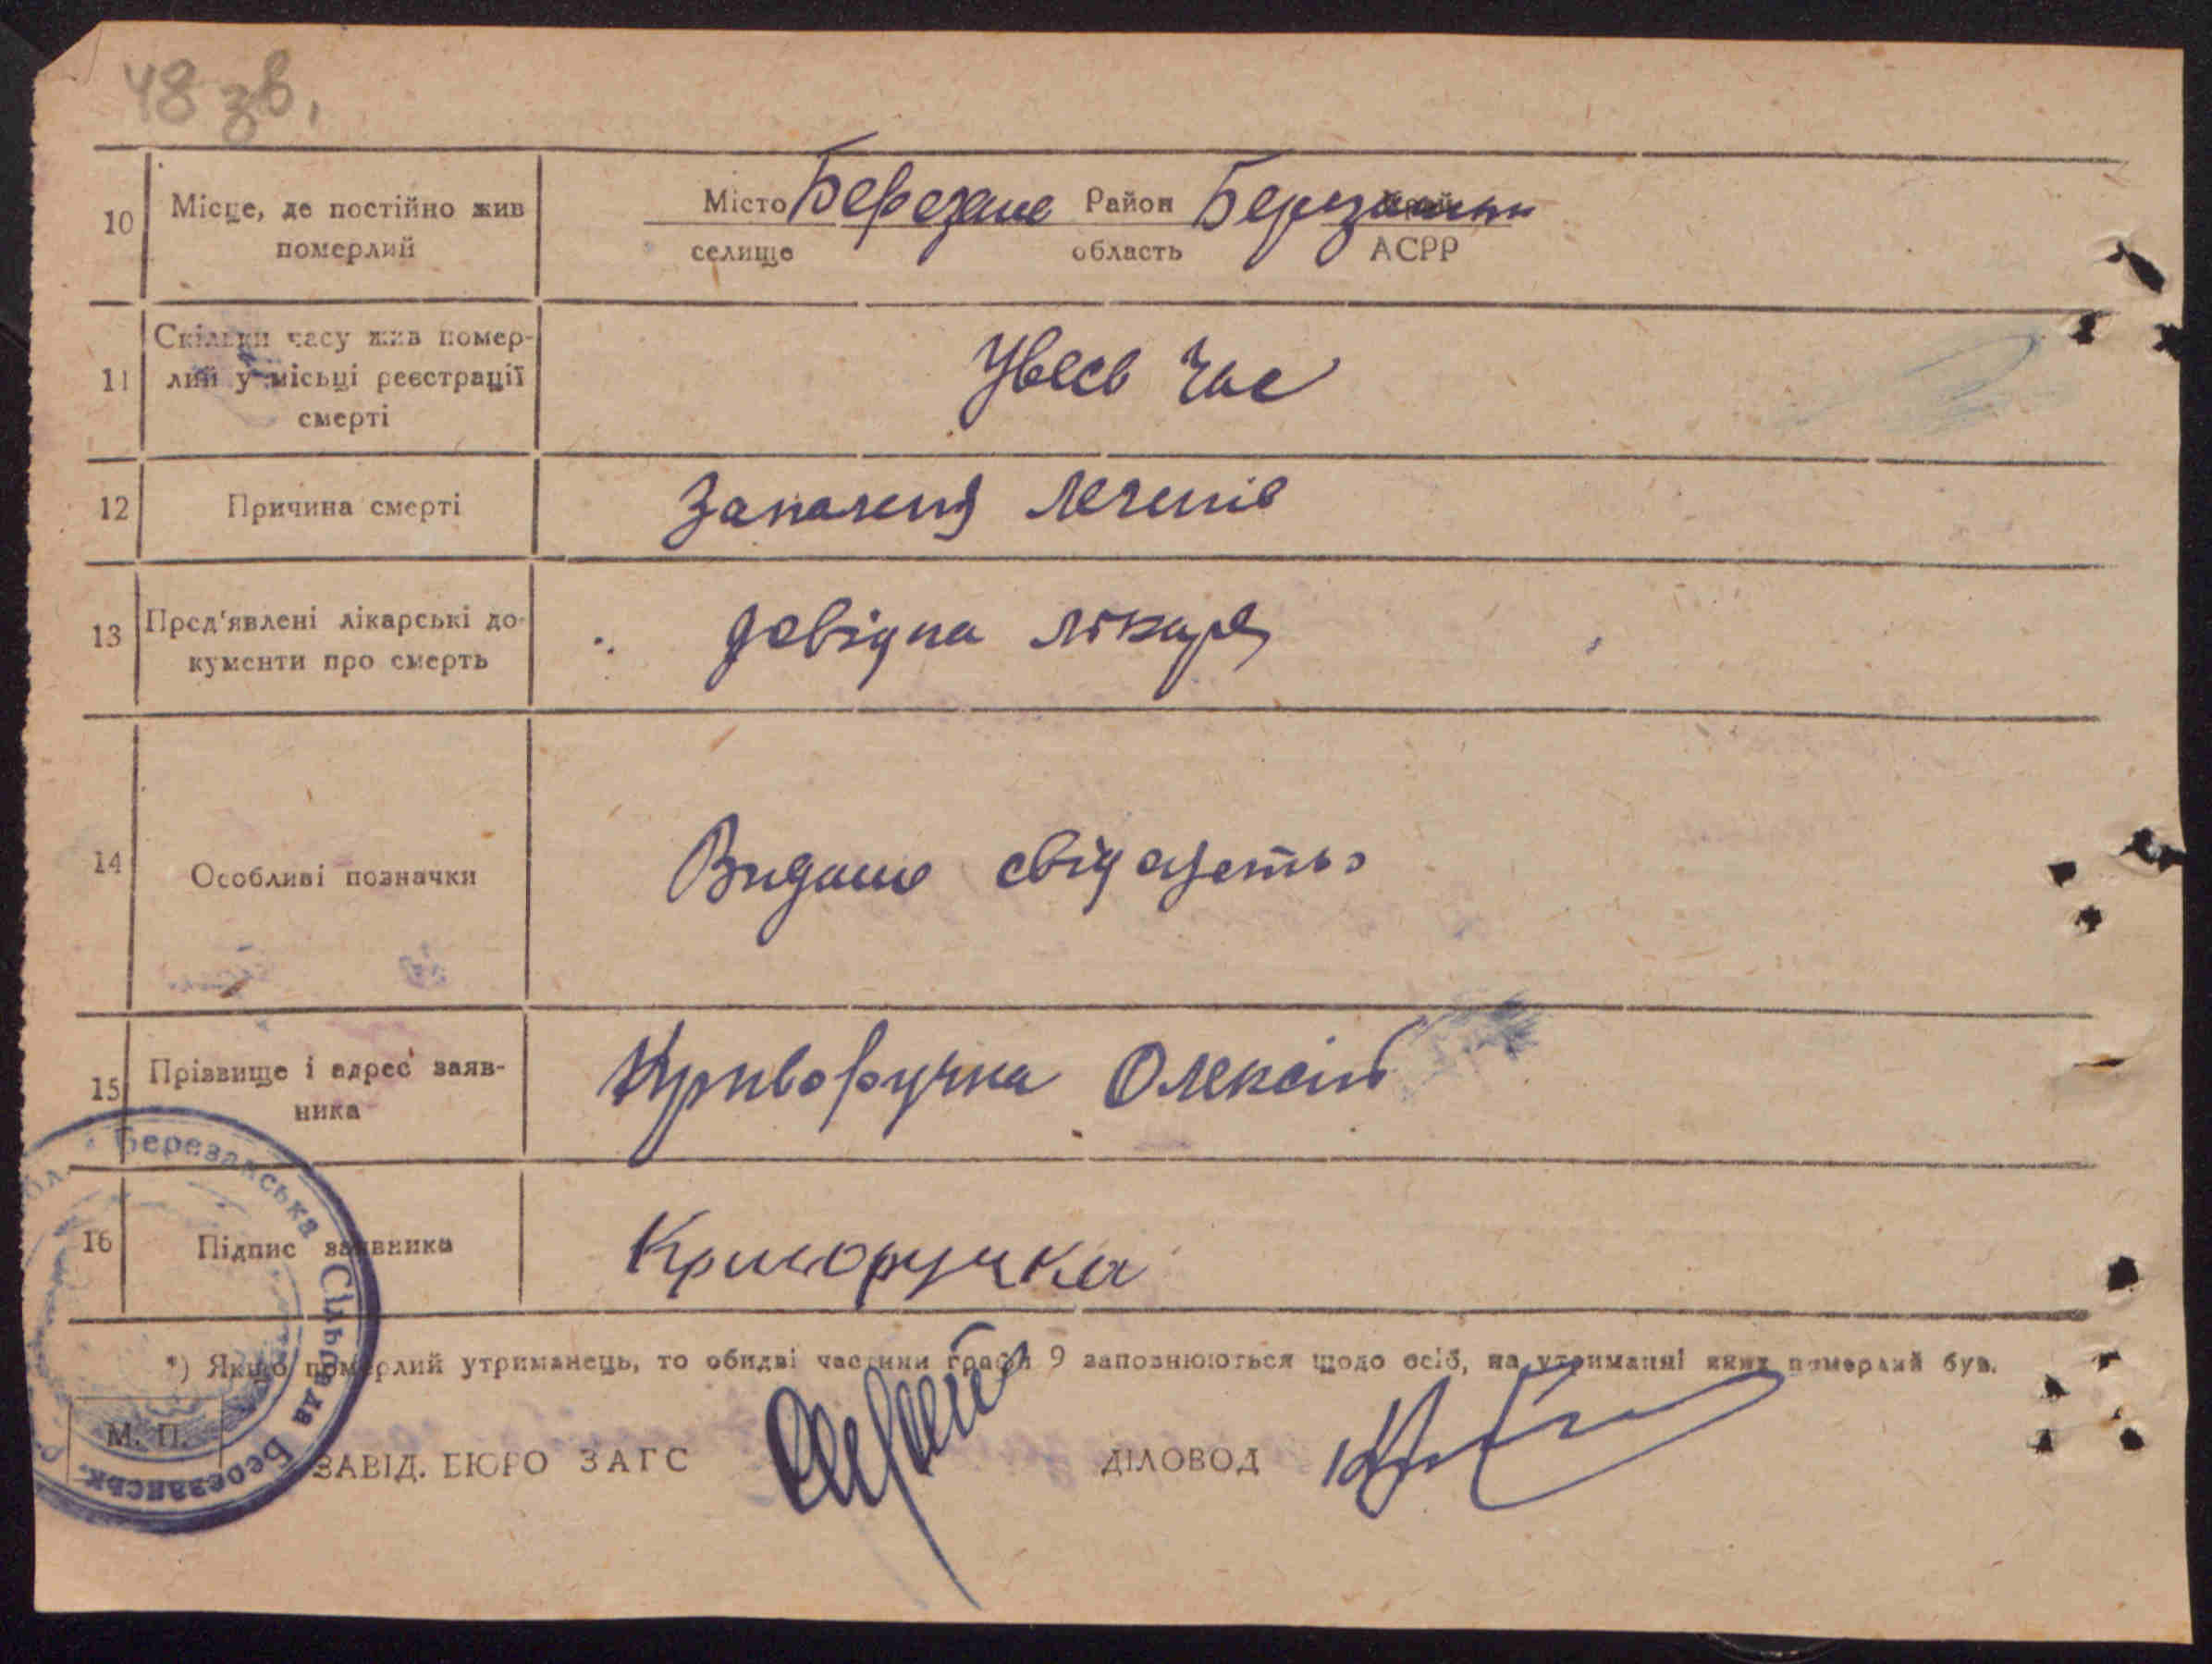 48 зв.
10 Місце, де постійно жив Місто Березане Район Березанськ
померлий селище область АСРР
Скільки часу жив помер-
11 лий у місьці реєстрації Увесь час
смерті
12 Причина смерті Запаленя легенів
13 Пред'явлені лікарські до- довідка лікаря
кументи про смерть
14 Особливі позначки Видано свідоцтво
15 Прізвище і адрес заяв- Криворучка Олексій
ника
16 Підпис заявника Криворучка
*) Якщо померлий утриманець, то обидві частини графи 9 заповнюються щодо осіб, на утриманні яких померлий був.
М. П.
ЗАВІД. БЮРО ЗАГС ДІЛОВОД
Березанська Сільрада Березанськ.